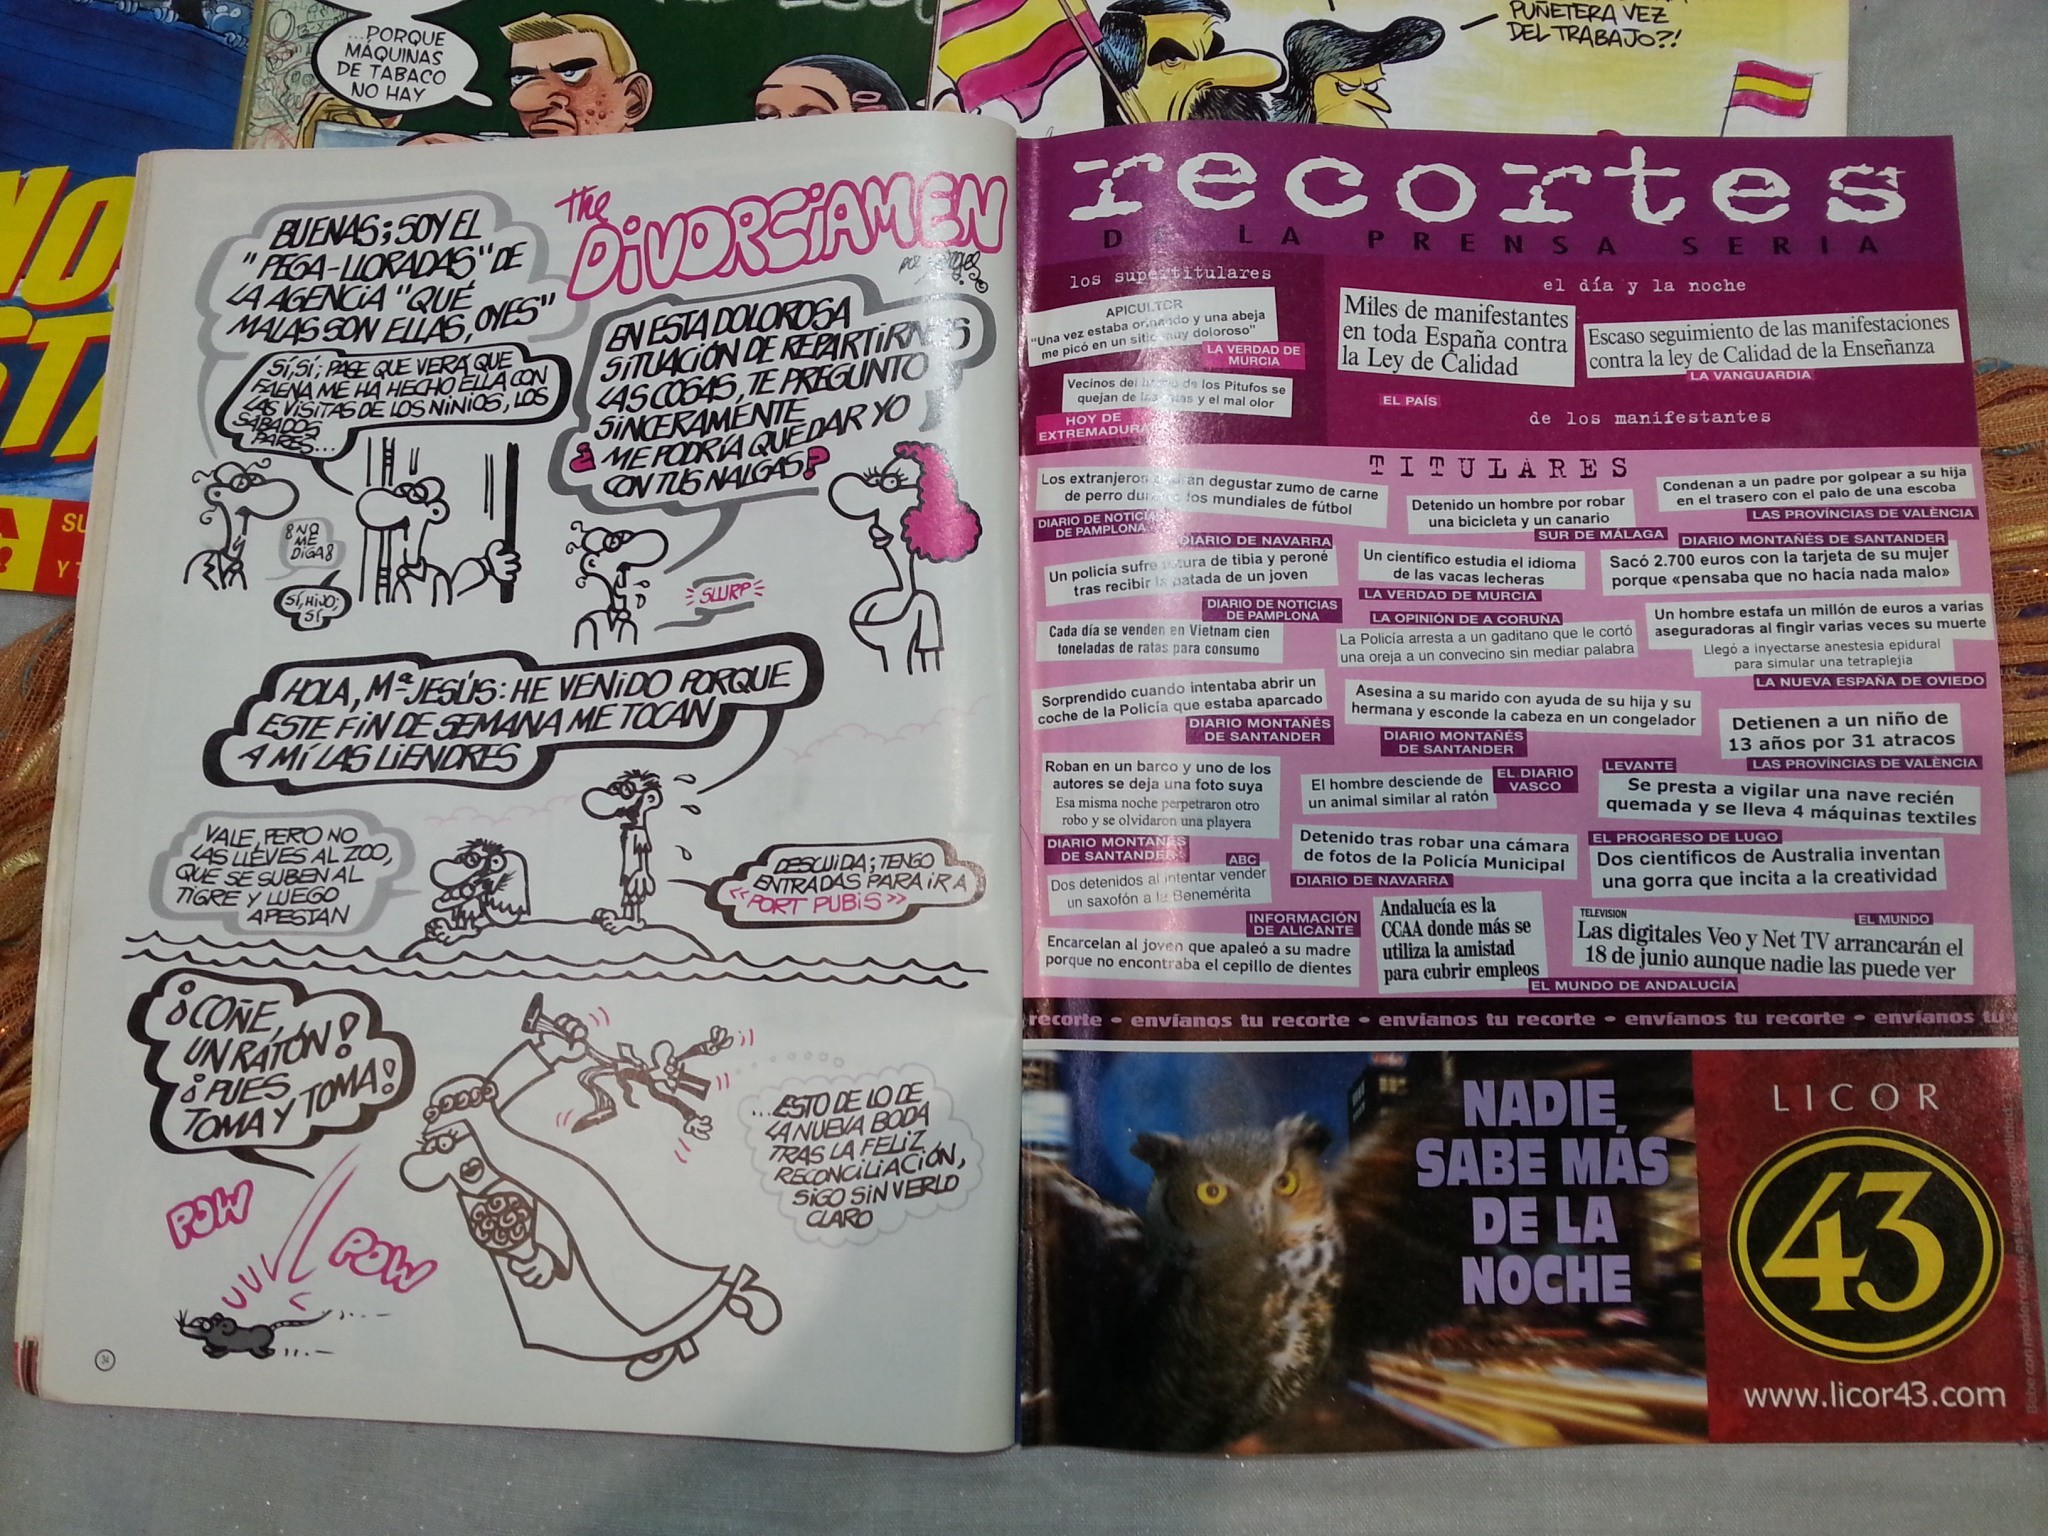 ...PORQUE
MÁQUINAS
DE TABACO
NO HAY
PUÑETERA VEZ
DEL TRABAJO?!
the
DIVORCIAMEN
BUENAS; SOY EL
"PEGA-LLORADAS" DE
LA AGENCIA "QUÉ
MALAS SON ELLAS, OYES"
SÍ, SÍ; PASE QUE VERÁ QUE
FAENA ME HA HECHO ELLA CON
LAS VISITAS DE LOS NINIOS, LOS
SÁBADOS
PARES...
¿NO
ME
DIGA?
SÍ, HIJO;
SÍ
EN ESTA DOLOROSA
SITUACIÓN DE REPARTIRNOS
LAS COSAS, TE PREGUNTO
SINCERAMENTE
¿ME PODRÍA QUEDAR YO
CON TUS NALGAS?
SLURP
HOLA, Mª JESÚS: HE VENIDO PORQUE
ESTE FIN DE SEMANA ME TOCAN
A MÍ LAS LIENDRES
VALE, PERO NO
LAS LLEVES AL ZOO,
QUE SE SUBEN AL
TIGRE Y LUEGO
APESTAN
DESCUIDA; TENGO
ENTRADAS PARA IR A
«PORT PUBIS»
¡COÑE,
UN RATÓN!
¡PUES
TOMA Y TOMA!
...ESTO DE LO DE
LA NUEVA BODA
TRAS LA FELIZ
RECONCILIACIÓN,
SIGO SIN VERLO
CLARO
POW
POW
34
recortes
DE LA PRENSA SERIA
los supertitulares
APICULTOR
"Una vez estaba orinando y una abeja
me picó en un sitio muy doloroso"
LA VERDAD DE
MURCIA
Vecinos del barrio de los Pitufos se
quejan de las ratas y el mal olor
HOY DE
EXTREMADURA
el día y la noche
Miles de manifestantes
en toda España contra
la Ley de Calidad
EL PAÍS
Escaso seguimiento de las manifestaciones
contra la ley de Calidad de la Enseñanza
LA VANGUARDIA
de los manifestantes
TITULARES
Los extranjeros podrán degustar zumo de carne
de perro durante los mundiales de fútbol
DIARIO DE NOTICIAS
DE PAMPLONA
Detenido un hombre por robar
una bicicleta y un canario
SUR DE MÁLAGA
Condenan a un padre por golpear a su hija
en el trasero con el palo de una escoba
LAS PROVÍNCIAS DE VALÈNCIA
DIARIO DE NAVARRA
Un policía sufre rotura de tibia y peroné
tras recibir la patada de un joven
Un científico estudia el idioma
de las vacas lecheras
LA VERDAD DE MURCIA
DIARIO MONTAÑÉS DE SANTANDER
Sacó 2.700 euros con la tarjeta de su mujer
porque «pensaba que no hacía nada malo»
DIARIO DE NOTICIAS
DE PAMPLONA
Cada día se venden en Vietnam cien
toneladas de ratas para consumo
LA OPINIÓN DE A CORUÑA
La Policía arresta a un gaditano que le cortó
una oreja a un convecino sin mediar palabra
Un hombre estafa un millón de euros a varias
aseguradoras al fingir varias veces su muerte
Llegó a inyectarse anestesia epidural
para simular una tetraplejia
LA NUEVA ESPAÑA DE OVIEDO
Sorprendido cuando intentaba abrir un
coche de la Policía que estaba aparcado
DIARIO MONTAÑÉS
DE SANTANDER
Asesina a su marido con ayuda de su hija y su
hermana y esconde la cabeza en un congelador
DIARIO MONTAÑÉS
DE SANTANDER
Detienen a un niño de
13 años por 31 atracos
LAS PROVÍNCIAS DE VALÈNCIA
Roban en un barco y uno de los
autores se deja una foto suya
Esa misma noche perpetraron otro
robo y se olvidaron una playera
DIARIO MONTAÑÉS
DE SANTANDER
El hombre desciende de
un animal similar al ratón
EL DIARIO
VASCO
LEVANTE
Se presta a vigilar una nave recién
quemada y se lleva 4 máquinas textiles
Detenido tras robar una cámara
de fotos de la Policía Municipal
DIARIO DE NAVARRA
EL PROGRESO DE LUGO
Dos científicos de Australia inventan
una gorra que incita a la creatividad
ABC
Dos detenidos al intentar vender
un saxofón a la Benemérita
INFORMACIÓN
DE ALICANTE
Encarcelan al joven que apaleó a su madre
porque no encontraba el cepillo de dientes
Andalucía es la
CCAA donde más se
utiliza la amistad
para cubrir empleos
EL MUNDO DE ANDALUCÍA
EL MUNDO
TELEVISION
Las digitales Veo y Net TV arrancarán el
18 de junio aunque nadie las puede ver
recorte • envíanos tu recorte • envíanos tu recorte • envíanos tu recorte • envíanos tu
NADIE
SABE MÁS
DE LA
NOCHE
LICOR
43
www.licor43.com